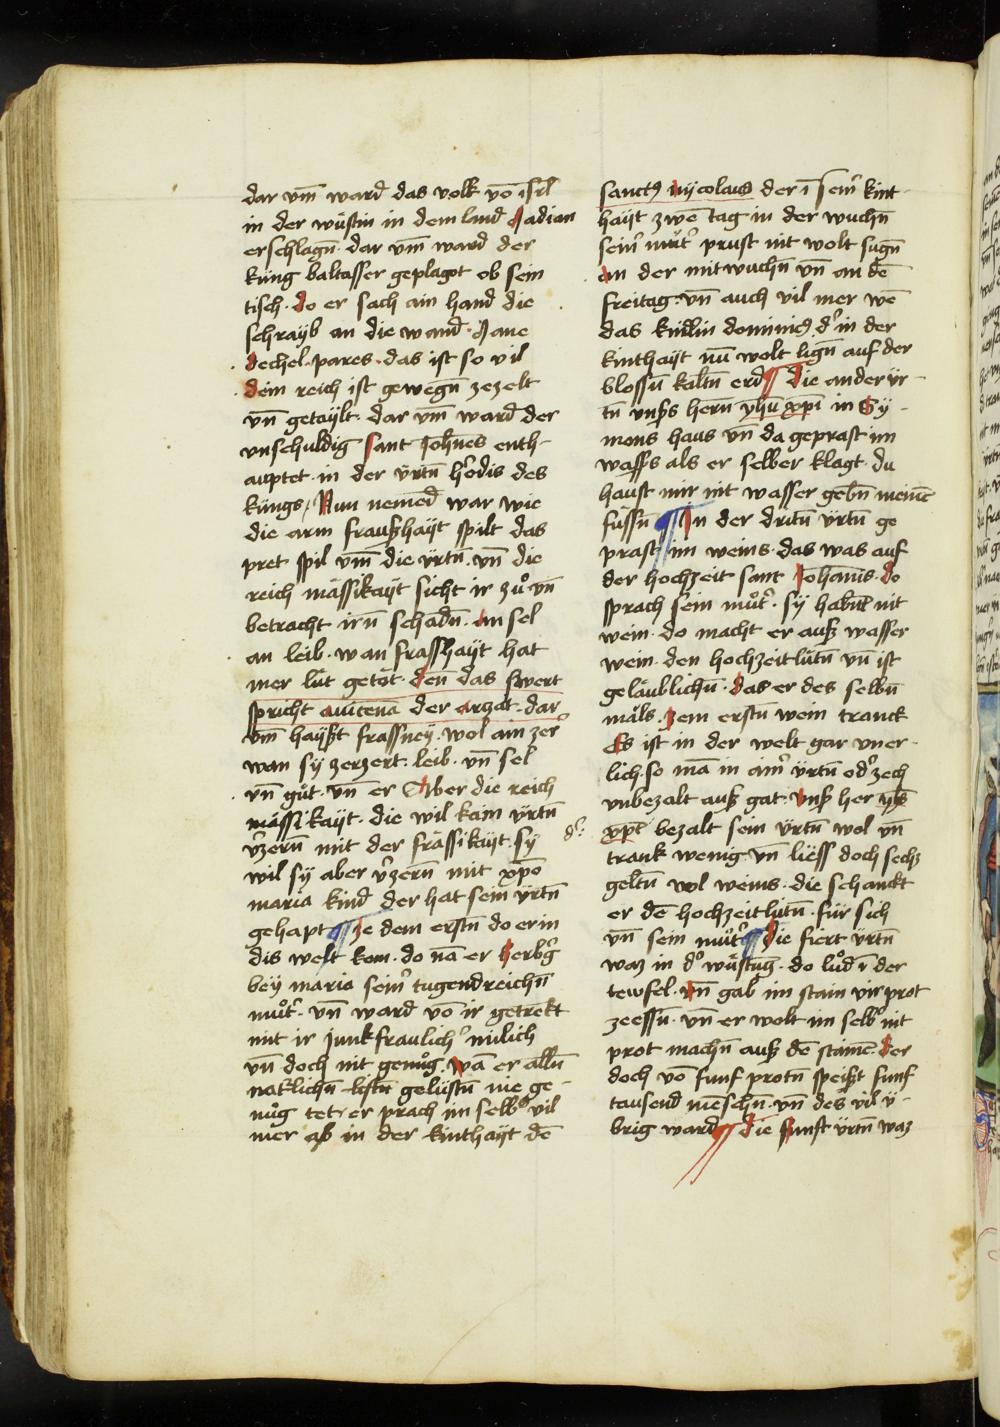 dar vm̄ ward das volk vō isrl
in der wüstin in dem land Madian
erschlagn̄. dar vm̄ ward der
küng baltasser geplagot ob sein
tisch. do er sach ain hand die
schrayb an die wand. Mane
dechel. pares. das ist so vil
dein reich ist gewegn̄ zezelt
vn̄ getaylt. dar vm̄ ward der
vnschuldig sant Johnes enth-
auptet in der v̈rtn̄ h̓odis des
küngs, Nun nemēd war wie
die arm fraußhayt spilt das
pret spil vm̄ die v̈rtn̄. vn̄ die
reich mässikayt sicht ir zuͦ vn̄
betracht irn̄ schadn̄. an sel
an leib. wan frasshayt hat
mer lüt getöt. den̄ das swert
spricht auicena der arczat. dar
vm̄ hayßt frassney. wol ain zer
wan sy zerzert. leib. vn̄ sel
vn̄ guͦt. vn̄ er Aber die reich
mässikayt. die wil kain v̈rtn̄
v̓zern̄ mit der frässikayt. sy
wil sy aber v̓zern̄ mit xpō
maria kind der hat sein v̈rtn̄
gehapt ¶ Ze dem erstn̄ do er in
dis welt kom. do nā er herbg̓
bey maria sein̓ tugendreichn̄
muͦt̓. vn̄ ward vō ir getrenkt
mit ir junkfraulich̓ milich
vn̄ doch nit genuͦg. wā er alln̄
natlichn̄ gelüstn̄ nie ge-
nuͦg tet. er prach im selb̓ vil
mer ab in der kinthayt dē
d̓:
sanct9 nycolaus der ī sein̓ kint-
hayt zwē tag in der wuchn̄
sein̓ muͦt̓ prust nit wolt sugn̄
an der mitwuchn̄ vn̄ an dē
freitag. vn̄ auch vil mer wē
das kindlin dominic9 d̓ in der
kinthayt nū wolt lign̄ auf der
blossn̄ kaltn̄ erd ¶ Die ander v̈r-
tn̄ vnsers hern̄ yhū xpī in Sy-
mons haus vn̄ da geprast im
wassers als er selber klagt. du
haust mir nit wasser gebn̄ meinē
füssn̄ ¶ In der dritn̄ v̈rtn̄ ge
prast im weins. das was auf
der hochzeit sant Johannis. do
sprach sein muͦt̓. sy habnt nit
wein. do macht er auß wasser
wein. den hochzeitlütn̄ vn̄ ist
geläublichn̄. das er des selbn̄
mals. zem erstn̄ wein tranck
Es ist in der welt gar vner-
lich. so mā in aim̓ v̈rtn̄ od̓ zech
vnbezalt auß gat. vnß her yhs
xpc bezalt sein v̈rtn̄ wol vn̄
trank wenig. vn̄ liess doch sechs
geltn̄ vol weins. die schanckt
er dē hochzeitlütn̄. für sich
vn̄ sein muͦt̓ ¶ Die fiert v̈rtn̄
waz in d̓ wüstung. do luͦd ī der
tewfel. vn̄ gab im stain vir prot
zeessn̄. vn̄ er wolt im selb̓ nit
prot machn̄ auß dē stainē. der
doch vō funf protn̄ speißt funf
tausend mēschn̄. vn̄ des vil v̈-
brig ward ¶ Die funft v̈rtn̄ waz